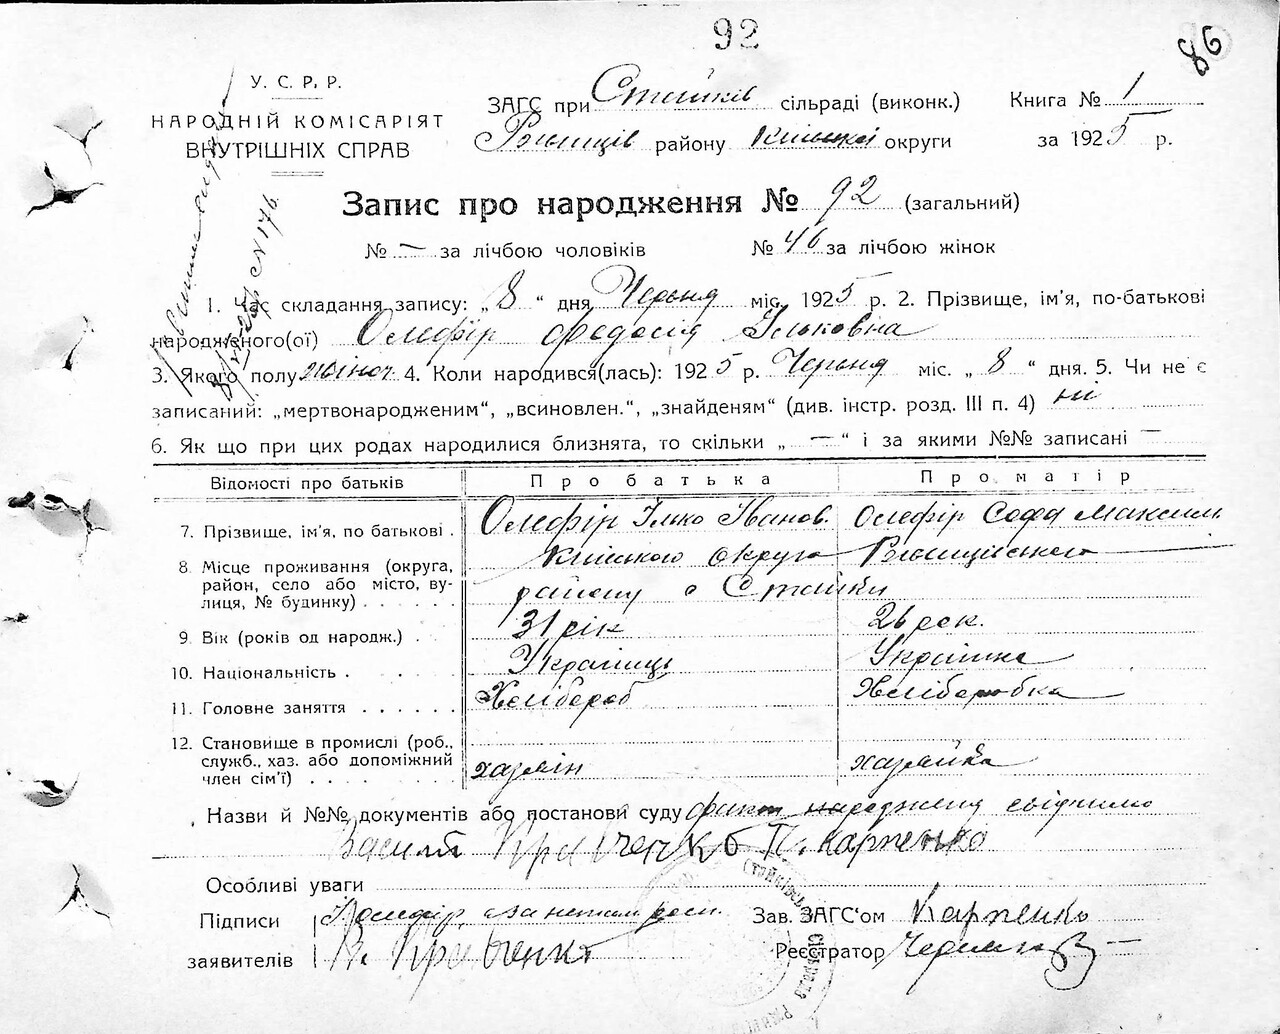 92
86
У. С. Р. Р.
НАРОДНІЙ КОМІСАРІЯТ
ВНУТРІШНІХ СПРАВ
ЗАГС при Стайків сільраді (виконк.)
Ржищів району Київської округи
Книга № 1
за 1925 р.
Запис про народження № 92 (загальний)
№ — за лічбою чоловіків № 46 за лічбою жінок
1. Час складання запису: „ 8 “ дня Червня міс. 1925 р. 2. Прізвище, ім'я, по-батькові
народженого(ої) Олефір Федосія Ільковна
3. Якого полу жіноч 4. Коли народився(лась): 1925 р. Червня міс. „ 8 “ дня. 5. Чи не є
записаний: „мертвонародженим“, „всиновлен.“, „знайденям“ (див. інстр. розд. III п. 4) ні
6. Як що при цих родах народилися близнята, то скільки „ — “ і за якими №№ записані —
Відомості про батьків Про батька Про матір
7. Прізвище, ім'я, по батькові . Олефір Ілько Іванов. Олефір Софія Максим
8. Місце проживання (округа, район, село або місто, вулиця, № будинку) Київського округа Ржищівського
району с Стайки
9. Вік (років од народж.) . 31 рік 26 рок.
10. Національність . Українець Українка
11. Головне заняття Хлібороб Хліборобка
12. Становище в промислі (роб., служб., хаз. або допоміжний член сім'ї) хазяїн хазяйка
Назви й №№ документів або постанови суду факт народження свідчимо
Василь Кравченко П. Карпенко
Особливі уваги
Підписи
заявителів В. Кравченко
Зав. ЗАГС'ом Карпенко
Реєстратор